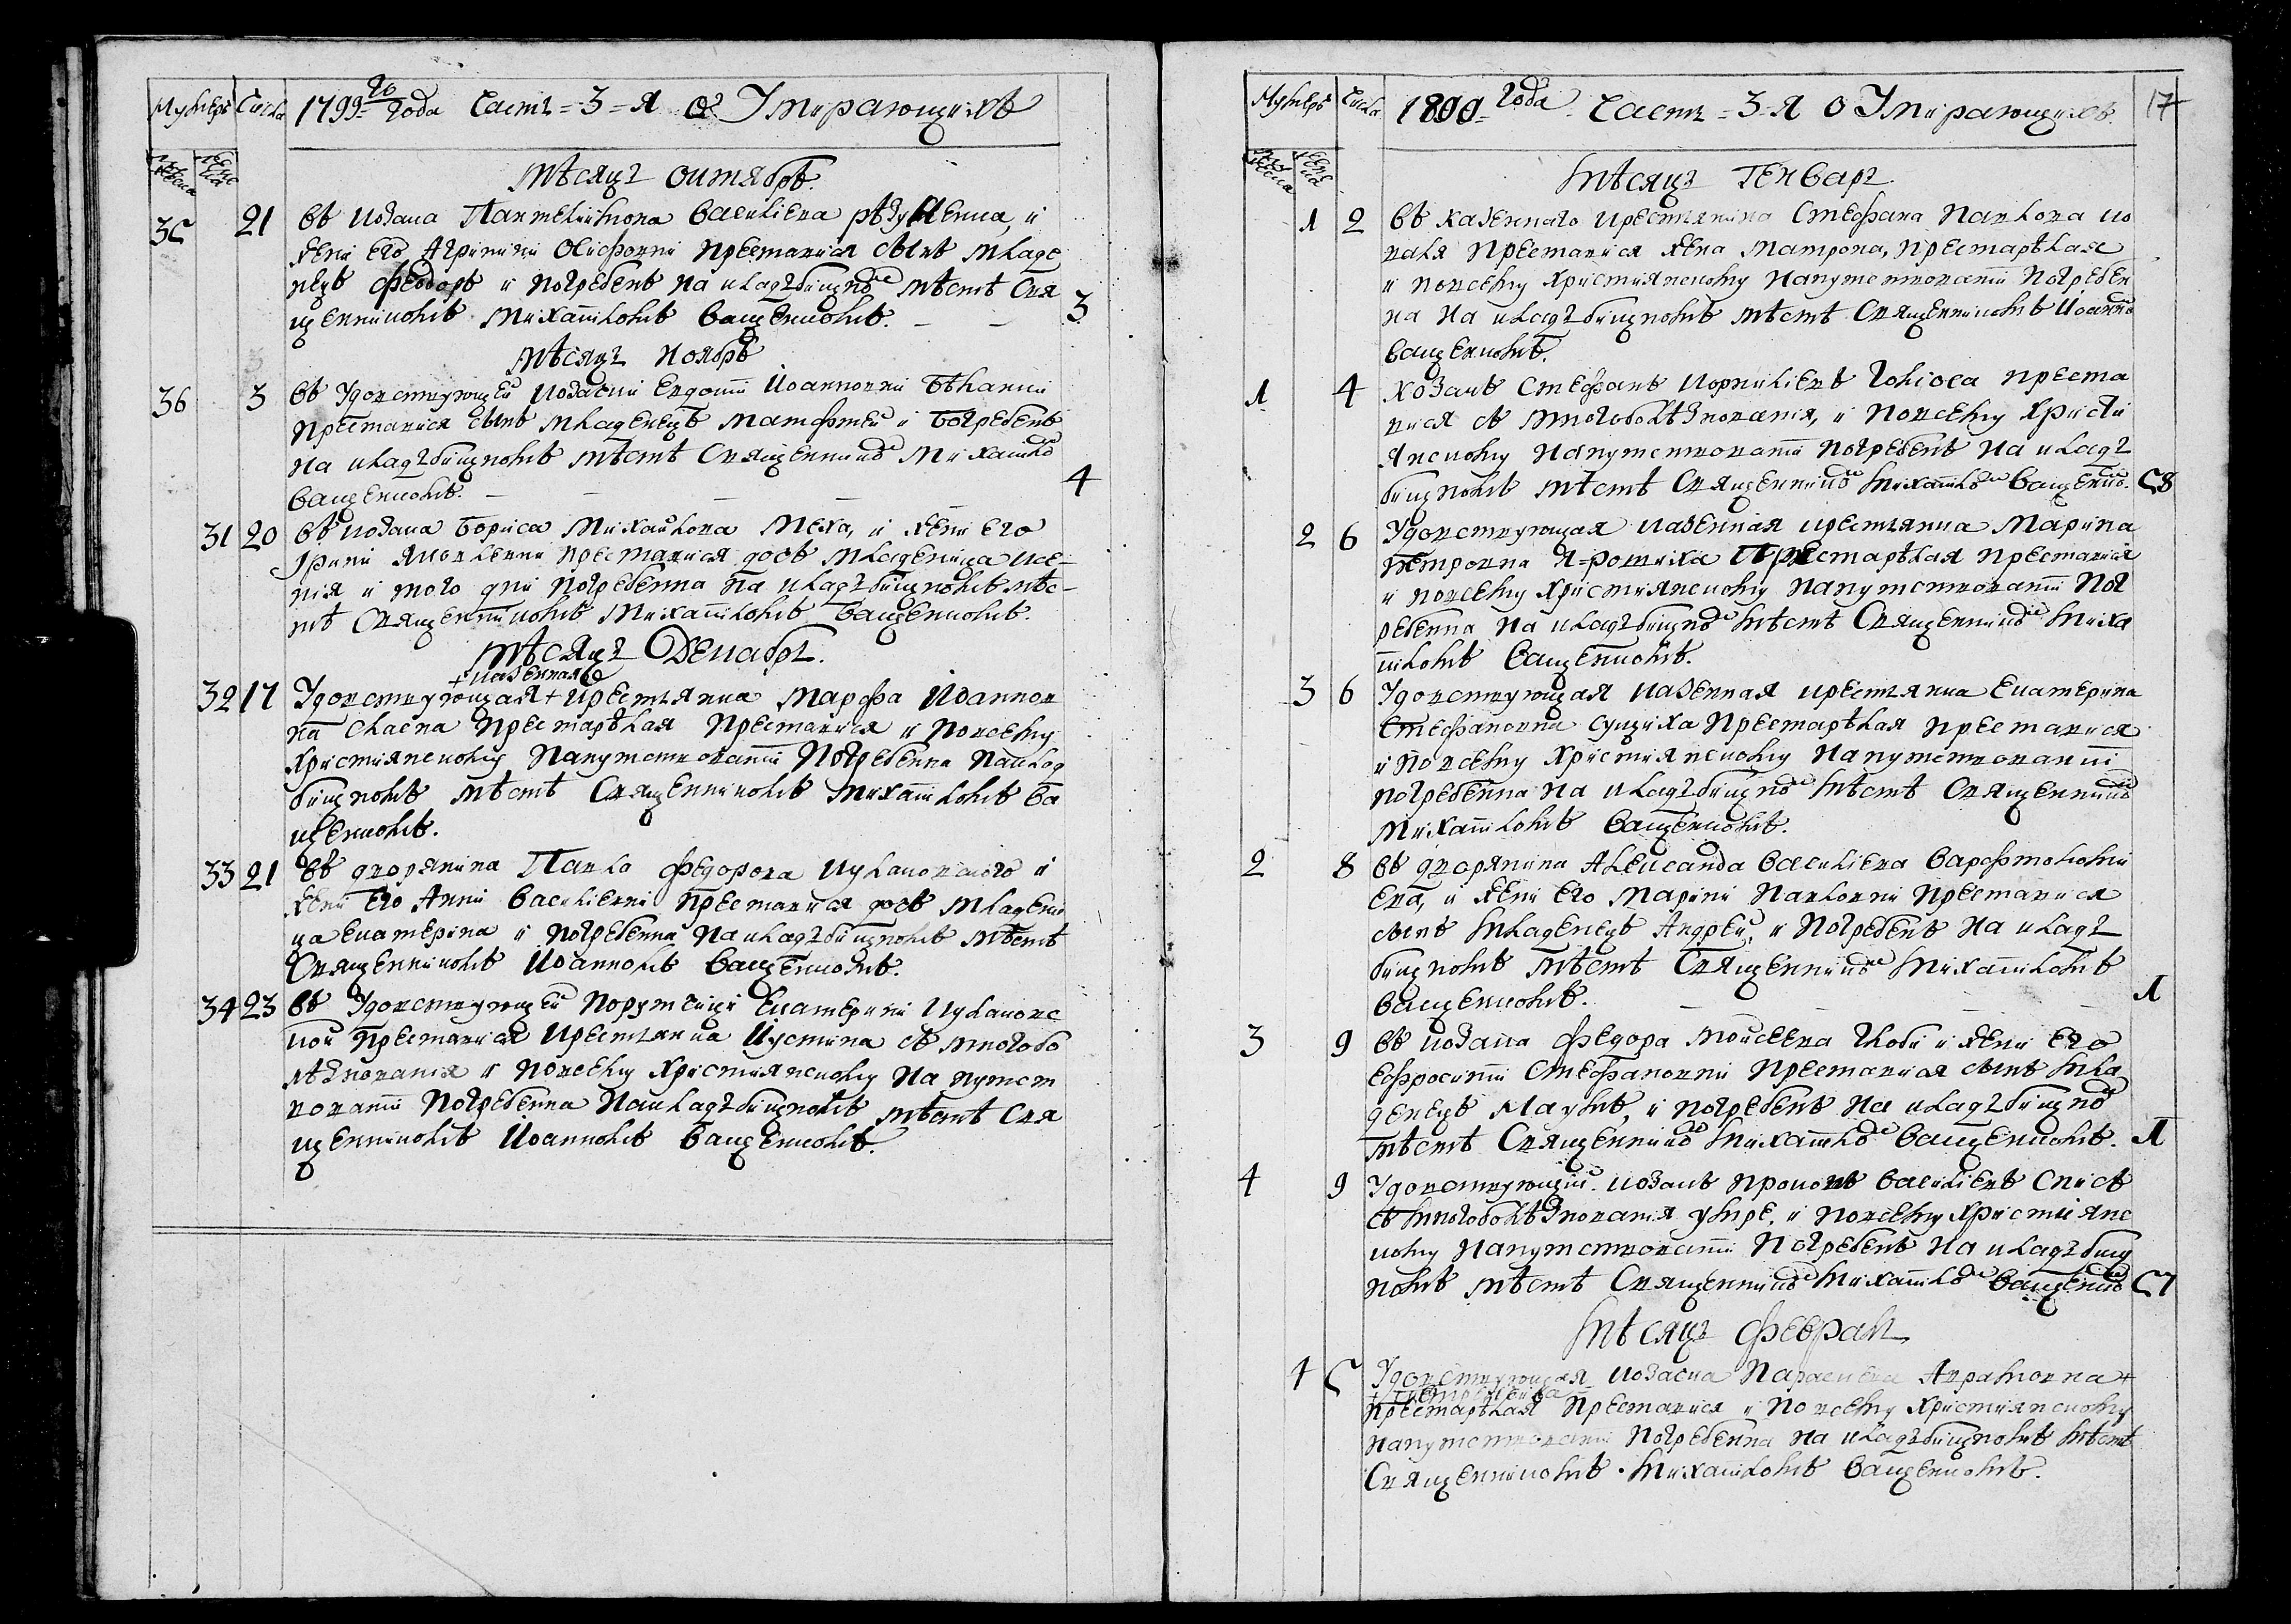 Мумеръ Числа 1799го года Часть=3=я О Умирающихъ
мужеска женска
мѣсяцъ октябрь
35 21 въ козака Пантелиимона Василіева рѣзуненка, и
жени его Агрипини Осифовни преставился сынъ младе
нецъ Феодоръ и погребенъ на кладъбищномъ мѣстѣ Свя
щенникомъ Михаиломъ Ващенкомъ. — — 3
мѣсяцъ ноябрь
36 3 въ Удовствующей козачки Евдокіи Иоанновни Бѣлакии
преставился сынъ младенецъ матофтей и погребенъ
на кладъбищномъ мѣстѣ Священникомъ Михаиломъ
Ващенкомъ. — — — — 4
31 20 въ козака Бориса Михайлова Меха, и жени его
Ирини Яковлевни преставися дочь младеница Ксе-
нія и того дни погребенна на кладъбищномъ мѣс-
тѣ Священникомъ Михаиломъ Ващенкомъ.
мѣсяцъ Декабрь.
+казенная
32 17 Удовствующая+крестьянка Марфа Иоаннов
на Сласна престарѣлая преставися и по всему
християнскому напутствованіи погребенна на клад
бищномъ мѣстѣ Священникомъ Михаиломъ Ва
щенкомъ.
33 21 въ дворянина Павла Федорова Кулаковского и
жени его Анни Василіевни преставися дочь младени
ца екатерина и погребенна на кладъбищномъ мѣстѣ
Священникомъ Иоанномъ Ващенкомъ.
34 23 въ Удовствующей порутчици Екатерини Кулаковс
кой преставися крестьянка Иустина съ многобо
лѣзнованія и по всему християнскому напутст
вованіи погребенна на кладъбищномъ мѣстѣ Свя
щенникомъ Иоанномъ Ващенкомъ.
Мумеръ Числа 1800 года Часть=3=я О Умирающихъ. 17
мужеска женска
мѣсяцъ Генварь
1 2 въ казеннаго крестьянина Стефана Павлова ко
валя преставися жена Матрона, престарѣлая
и по всему християнскому напутствованіи погребен
на на кладъбищномъ мѣстѣ Священникомъ Иоанномъ
Ващенкомъ.
1 4 Козакъ Стефанъ Корниліевъ Голюса преста
вися съ многоболѣзнованія, и по всему христи
янскому напутствованіи погребенъ на кладъ
бищномъ мѣстѣ Священникомъ Михаиломъ Ващенкомъ. 58
2 6 Удовствующая казенная крестьянка Марина
петровна Я=ротиха Престарѣлая преставися
и по всему християнскому напутствованіи пог
ребенна на кладъбищномъ мѣстѣ Священникомъ Миха
иломъ Ващенкомъ.
3 6 Удовствующая казенная крестьянка Екатерина
Стефановна сущиха престарѣлая преставися
и по всему християнскому напутствованіи
погребенна на кладъбищномъ мѣстѣ Священникомъ
Михаиломъ Ващенкомъ.
2 8 въ дворянина Александа Василіева Варфоломии
ева, и жени его Марини Павловни преставися
сынъ младенецъ Андрей, и погребенъ на кладъ
бищномъ мѣстѣ Священникомъ Михаиломъ
Ващенкомъ. — — — — 1
3 9 въ козака Федора Мойсеева Глоби и жени его
Ефросиніи Стефановни преставися сынъ мла
денецъ Наумъ, и погребенъ на кладъбищномъ
мѣстѣ Священникомъ Михаиломъ Ващенкомъ. 1
4 9 Удовствующій козакъ Прокопъ Василіевъ Списъ
съ многоболѣзнованія умре, и по всему християнс
кому напутствованіи погребенъ на кладъбищ
номъ мѣстѣ Священникомъ Михаиломъ Ващенкомъ 57
Мѣсяцъ Февраль
4 5 Удовствующая козачка Параскева Аврамовна+
престарѣлая преставися и по всему християнскому
напутствованіи погребенна на кладъбищномъ мѣстѣ
Священникомъ Михаиломъ Ващенкомъ.